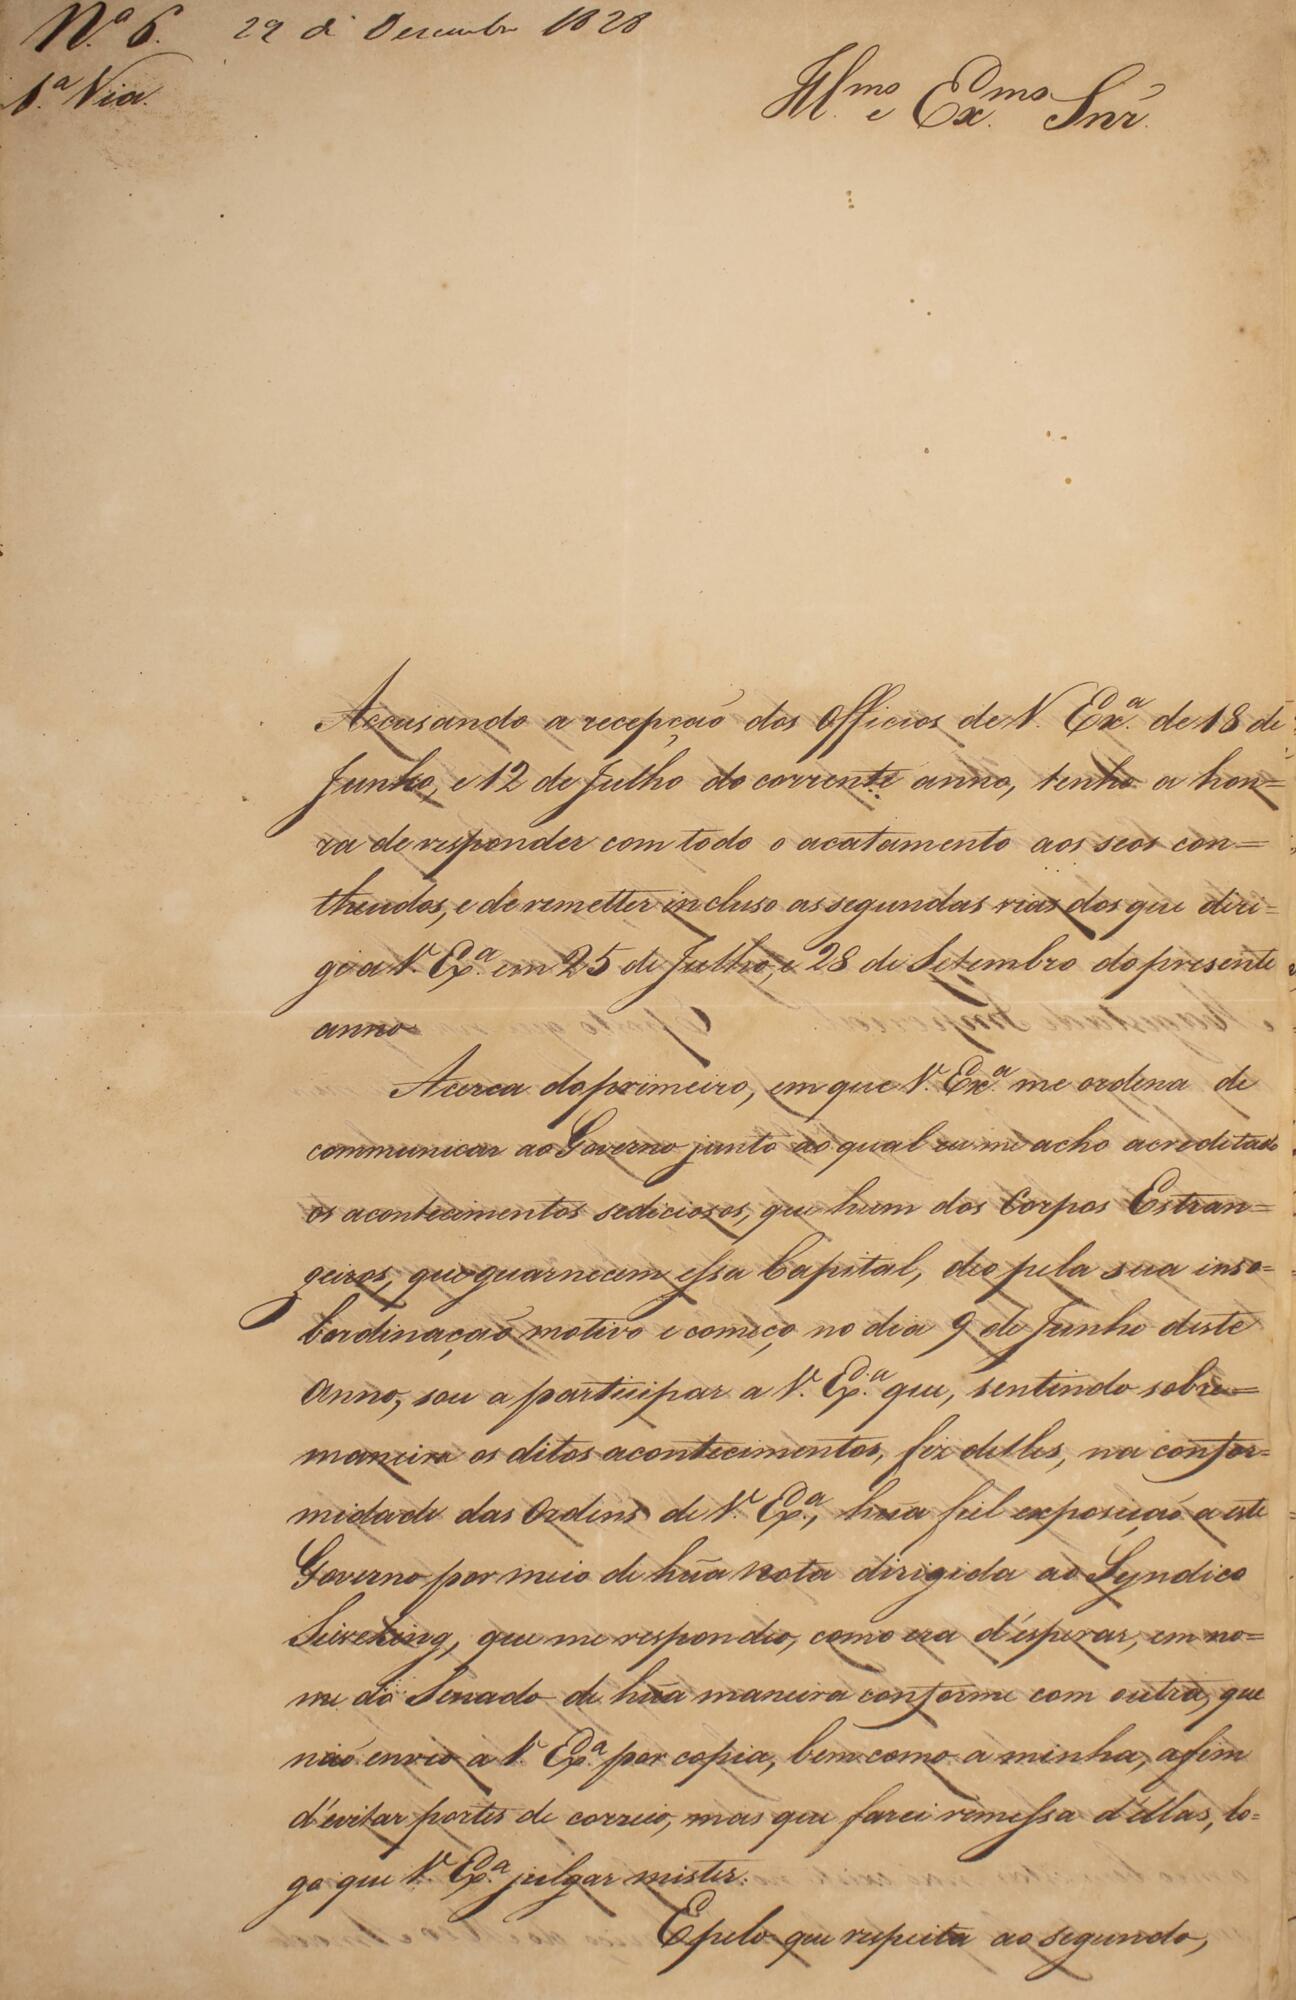 N.º 6. 29 de Dezembro 1828
1.ª Via.
Ill.mo e Ex.mo Snr.
Accusando a recepção dos Officios de V. Ex.ª de 18 de
Junho, e 12 de Julho do corrente anno, tenho a hon=
ra de responder com todo o acatamento aos seos con=
theudos, e de remetter incluso as segundas vias dos que diri=
gi a V. Ex.ª em 25 de Julho, e 28 de Setembro do presente
anno
Acerca do primeiro, em que V. Ex.ª me ordena de
communicar ao Governo junto ao qual eu me acho acreditado
os acontecimentos sediciosos, que hum dos Corpos Estran=
geiros, que guarnecem essa Capital, deo pela sua inso=
bordinação motivo e começo no dia 9 de Junho deste
Anno, sou a participar a V. Ex.ª que, sentindo sobre=
maneira os ditos acontecimentos, fiz delles, na confor=
midade das Ordens de V. Ex.ª, hũa fiel exposição a este
Governo por meio de hũa Nota dirigida ao Syndico
Sieveking, que me respondeo, como era d'esperar, em no=
me do Senado de hũa maneira conforme com outra, que
não envio a V. Ex.ª por copia, bem como a minha, afim
d'evitar portes de correio, mas que farei remessa d'ellas, lo=
go que V. Ex.ª julgar mister.
E pelo que respeita ao segundo,